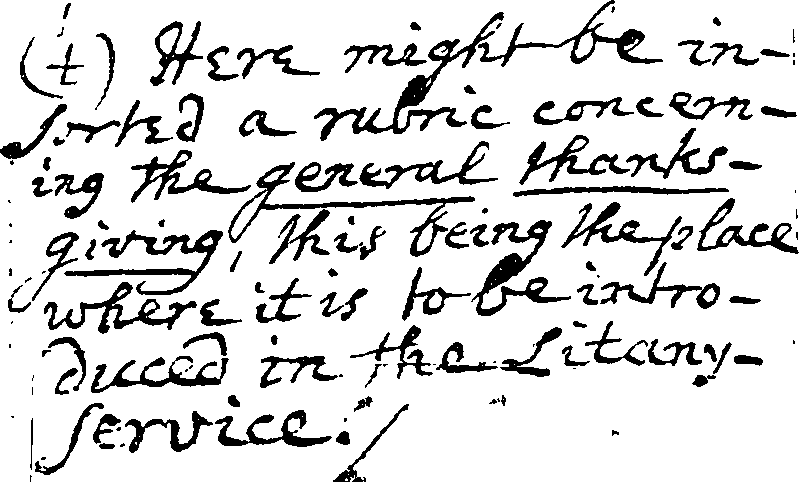 (t) Here might be in-
serted a rubric concern-
ing the general thanks-
giving, this being the place
where it is to be intro-
duced in the Litany-
service.